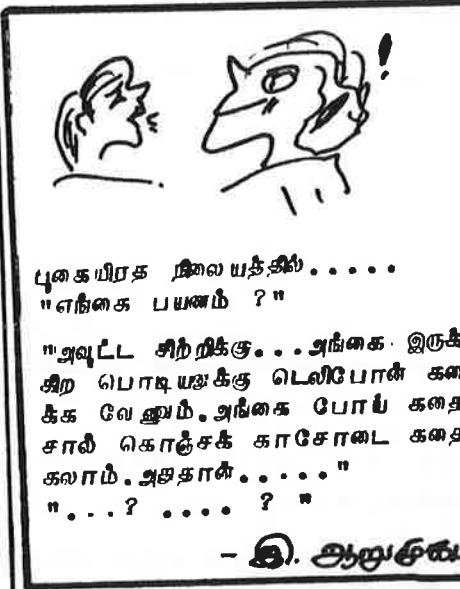 !
புகையிரத நிலையத்தில்.....
"எங்கை பயணம் ?"
"அவுட்ட சிற்றிக்கு...அங்கை இருக்
கிற பொடியனுக்கு டெலிபோன் கதை
க்க வேணும்.அங்கை போய் கதை
சால் கொஞ்சக் காசோடை கதை
கலாம்.அதுதான்....."
"...? .... ? "
- இ. ஆறுமுகம்